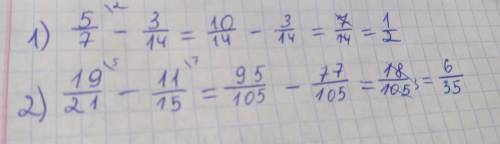 1) 5/7 \2 - 3/14 = 10/14 - 3/14 = 7/14 = 1/2
2) 19/21 \5 - 11/15 \7 = 95/105 - 77/105 = 18/105 = 6/35